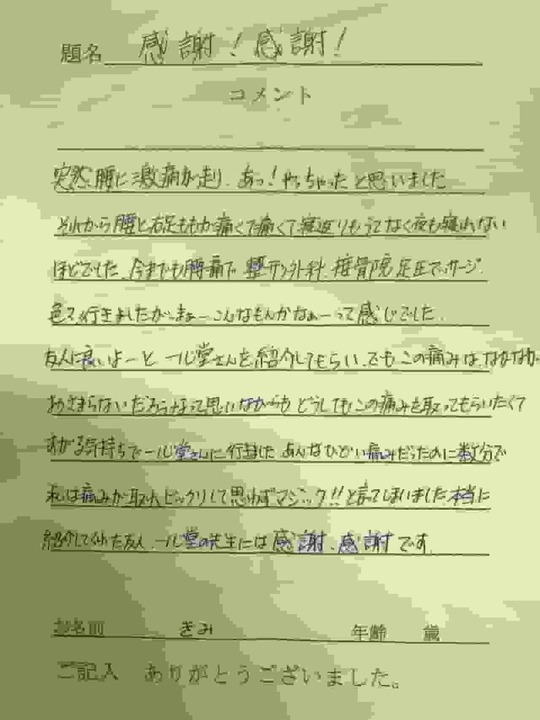 題名 感謝！感謝！
コメント
突然腰に激痛が走り、あっ！やっちゃったと思いました
それから腰と右足ももが痛くて痛くて寝返りもうてなく夜も寝れない
ほどでした。今までも腰痛で、整けい外科、接骨院、足圧マッサージ、
色々行きましたが、まぁーこんなもんかなぁーって感じでした。
友人に良いよーと、一心堂さんを紹介してもらい、でも、この痛みは、なかなか
おさまらないだろうなって思いながらも、どうしてもこの痛みを取ってもらいたくて
すがる気持ちで一心堂さんに行きました。あんなひどい痛みだったのに数分で
私は痛みが取れ、ビックリして思わずマジック!!と言ってしまいました。本当に
紹介してくれた友人、一心堂の先生には感謝、感謝です。
お名前 きみ 年齢 歳
ご記入 ありがとうございました。